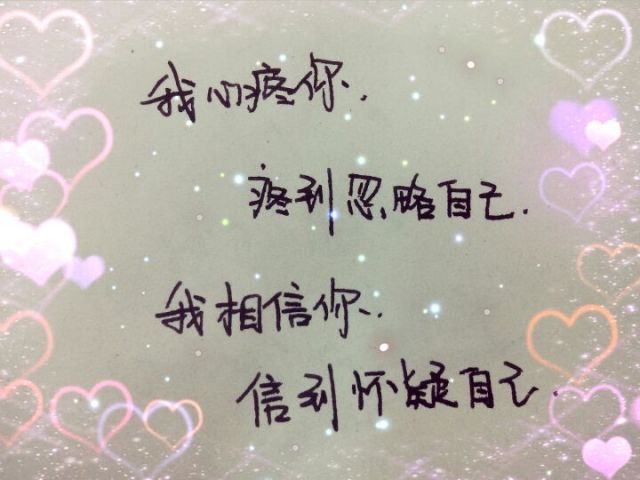 我心疼你.
疼到忽略自己.
我相信你.
信到怀疑自己.